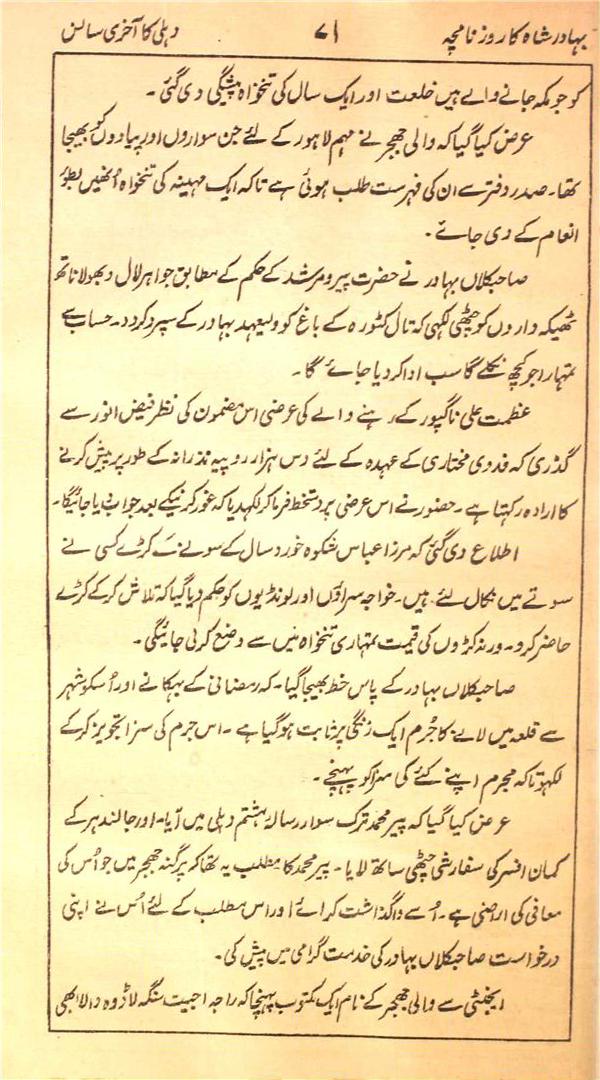 بہادر شاہ کا روزنامچہ ۷۱ دہلی کا آخری سانس
کو جو مکہ جانے والے ہیں خلعت اور ایک سال کی تنخواہ پیشگی دی گئی۔
عرض کیا گیا کہ والی جھجر نے مہم لاہور کے لئے جن سواروں اور پیادوں کو بھیجا
تھا۔ صدر دفتر سے ان کی فہرست طلب ہوئی ہے تاکہ ایک مہینہ کی تنخواہ اُنھیں بطور
انعام کے دی جائے۔
صاحبکلاں بہادر نے حضرت پیر و مرشد کے حکم کے مطابق جواہر لال و بھولا ناتھ
ٹھیکہ داروں کو چٹھی لکھی کہ تال کٹورہ کے باغ کو ولیعہد بہادر کے سپرد کردد۔ حساب سے
تمہارا جو کچھ نکلے گا سب ادا کر دیا جائے گا۔
عظمت علی ناگپور کے رہنے والے کی عرضی اس مضمون کی نظر فیض انور سے
گذری کہ فدوی مختاری کے عہدہ کے لئے دس ہزار روپیہ نذرانہ کے طور پر پیش کرنے
کا ارادہ رکھتا ہے۔ حضور نے اس عرضی پر دستخط فرما کر لکھدیا کہ غور کرنیکے بعد جواب دیا جائیگا۔
اطلاع دی گئی کہ مرزا عباس شکوہ خورد سال کے سونے کے کڑے کسی نے
سوتے میں نکال لئے ہیں۔ خواجہ سراؤں اور لونڈیوں کو حکم دیا گیا کہ تلاش کر کے کڑے
حاضر کرو۔ ورنہ کڑوں کی قیمت تمہاری تنخواہ میں سے وضع کرلی جائیگی۔
صاحبکلاں بہادر کے پاس خط بھیجا گیا۔ کہ رمضانی کے بہکانے اور اُسکو شہر
سے قلعہ میں لانے کا جُرم ایک زنگی پر ثابت ہو گیا ہے۔ اس جرم کی سزا تجویز کر کے
لکھو تاکہ مجرم اپنے کئے کی سزا کو پہنچے۔
عرض کیا گیا کہ پیر محمد ترک سوار رسالہ ہشتم دہلی میں آیا۔ اور جالندہر کے
کمان افسر کی سفارشی چٹھی ساتھ لایا۔ پیر محمد کا مطلب یہ تھا کہ پرگنہ جھجر میں جو اُس کی
معافی کی اراضی ہے۔ اُسے واگذاشت کرائے اور اس مطلب کے لئے اُس نے اپنی
درخواست صاحبکلاں بہادر کی خدمت گرامی میں پیش کی۔
ایجنٹی سے والی جھجر کے نام ایک مکتوب پہنچا کہ راجہ اجیت سنگہ لاڈوہ والا ابھی